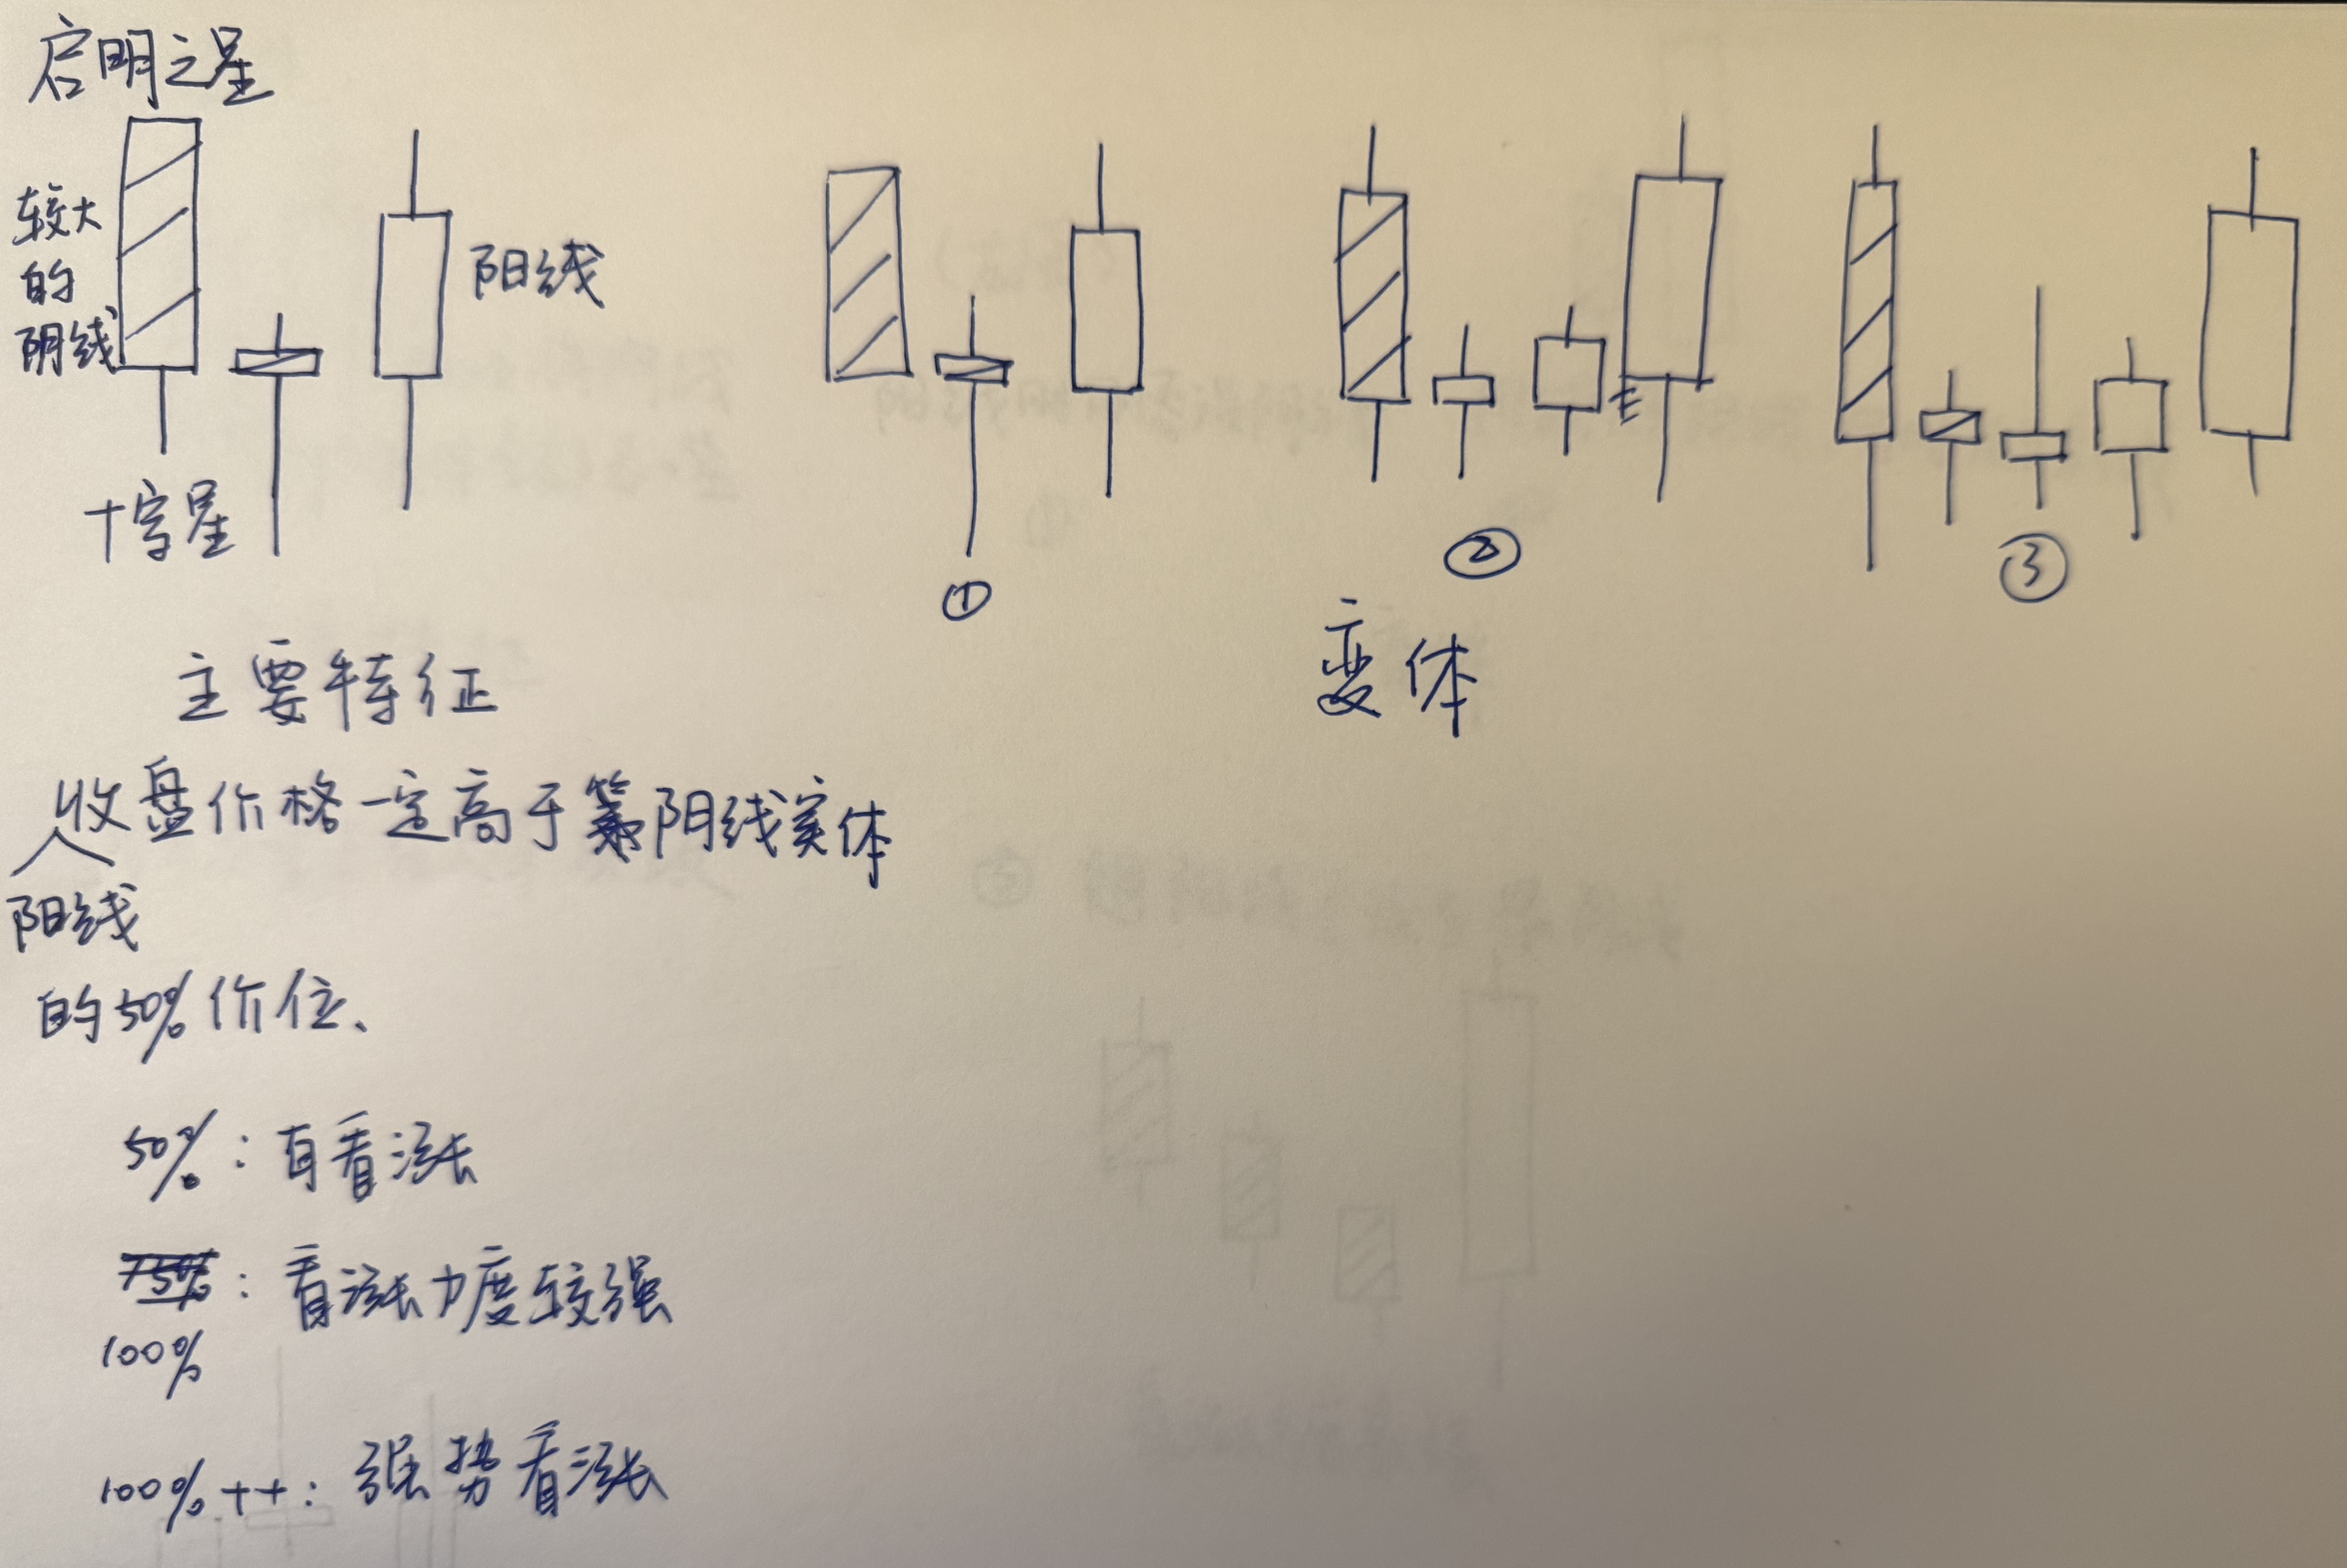 启明之星
较大
的
阴线
阳线
十字星
①
②
③
变体
主要特征
收盘价格一定高于阴线实体
阳线
的50%价位、
50%：有看涨
75%：看涨力度较强
100%
100%++：强势看涨